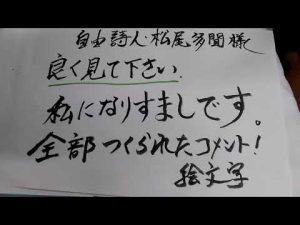 自由詩人・松尾多聞様
良く見て下さい。
私になりすましです。
全部つくられたコメント!
絵文字